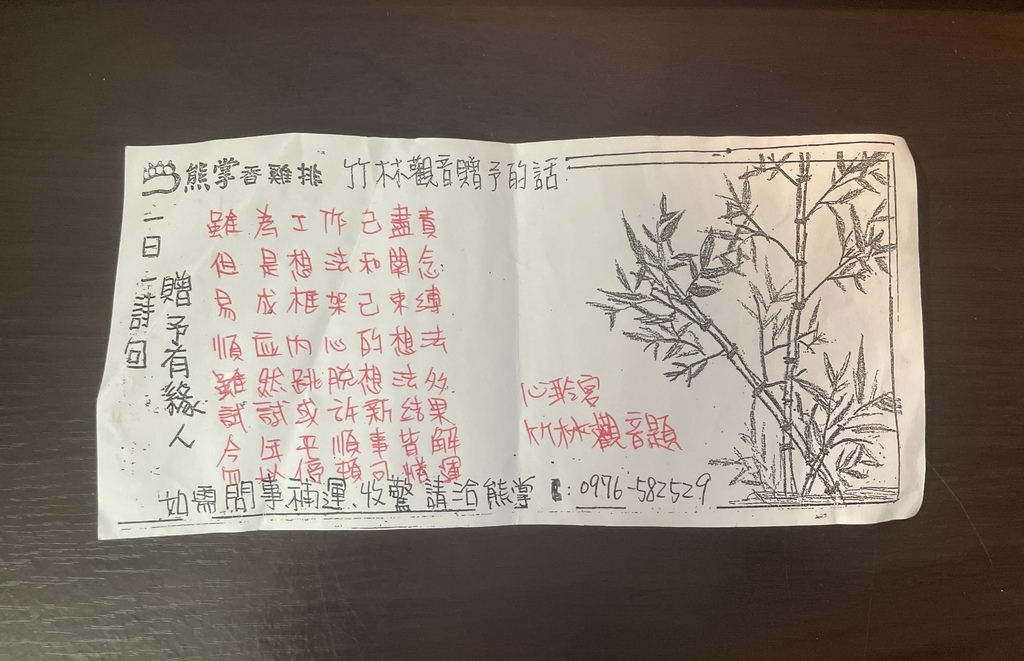 熊掌香雞排 竹林觀音贈予的話
一日一詩句
贈予有緣人
雖為工作已盡責
但是想法和關念
易成框架己束縛
順应內心的想法
雖然跳脫想法外
試試或許新結果
今年平順事皆解
煩可轉運
心聆客
竹林觀音題
如需問事補運、收驚請洽熊掌 :0976-582529